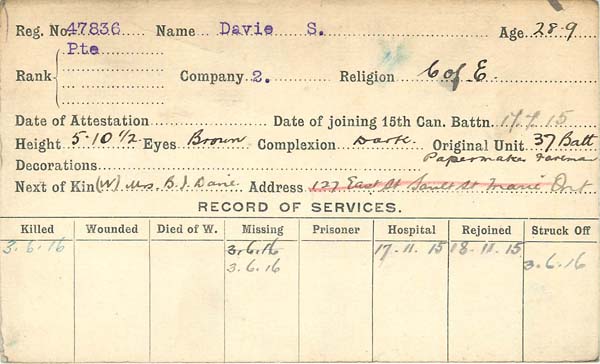 Reg. No. 47836 Name Davie S. Age 28-9
Pte
Rank Company 2. Religion C of E.
Date of Attestation Date of joining 15th Can. Battn. 17.7.15
Height 5-10 1/2 Eyes Brown Complexion Dark Original Unit 37 Batt
Decorations Papermaker Foreman
Next of Kin (W) Mrs. B. J. Davie Address 127 East St Sault St Marie Ont
RECORD OF SERVICES.
Killed Wounded Died of W. Missing Prisoner Hospital Rejoined Struck Off
3.6.16 3.6.16 17.11.15 18.11.15
3.6.16 3.6.16